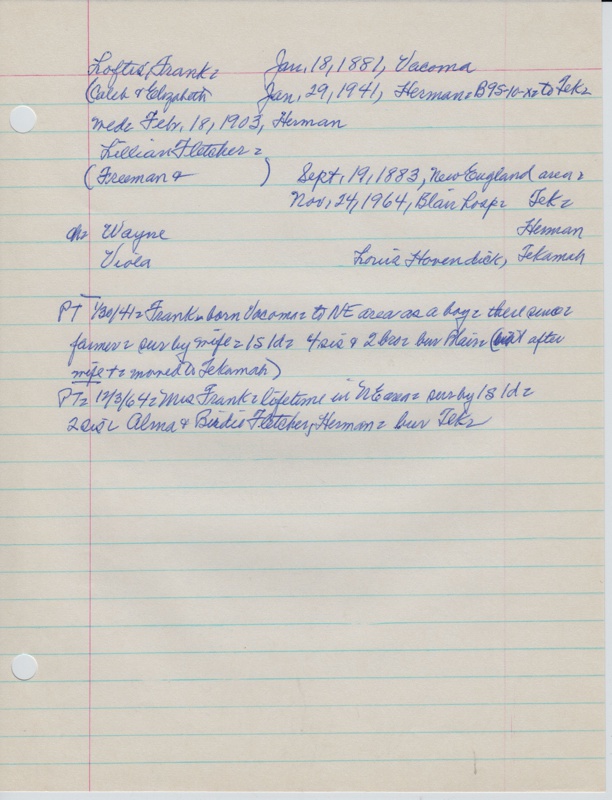 Loftis, Frank = Jan, 18, 1881, Vacoma
(Caleb & Elizabeth Jan, 29, 1941, Herman = B95-10-x = to Tek =
wed = Febr. 18, 1903, Herman
Lillian Fletcher =
(Freeman & ) Sept, 19, 1883, New England area =
Nov, 24, 1964, Blair hosp = Tek =
ch = Wayne Herman
Viola Louis Hovendick, Tekamah
PT 1/30/41 = Frank = born Vacoma = to NE area as a boy = there since =
farmer = sur by wife = 1s 1d = 4 sis & 2 bro = bur Blair = ( after
wife + = moved to Tekamah)
PT = 12/3/64 = Mrs Frank = lifetime in NE area = sur by 1s 1d =
2 sis = Alma & Birdie Fletcher, Herman = bur Tek =